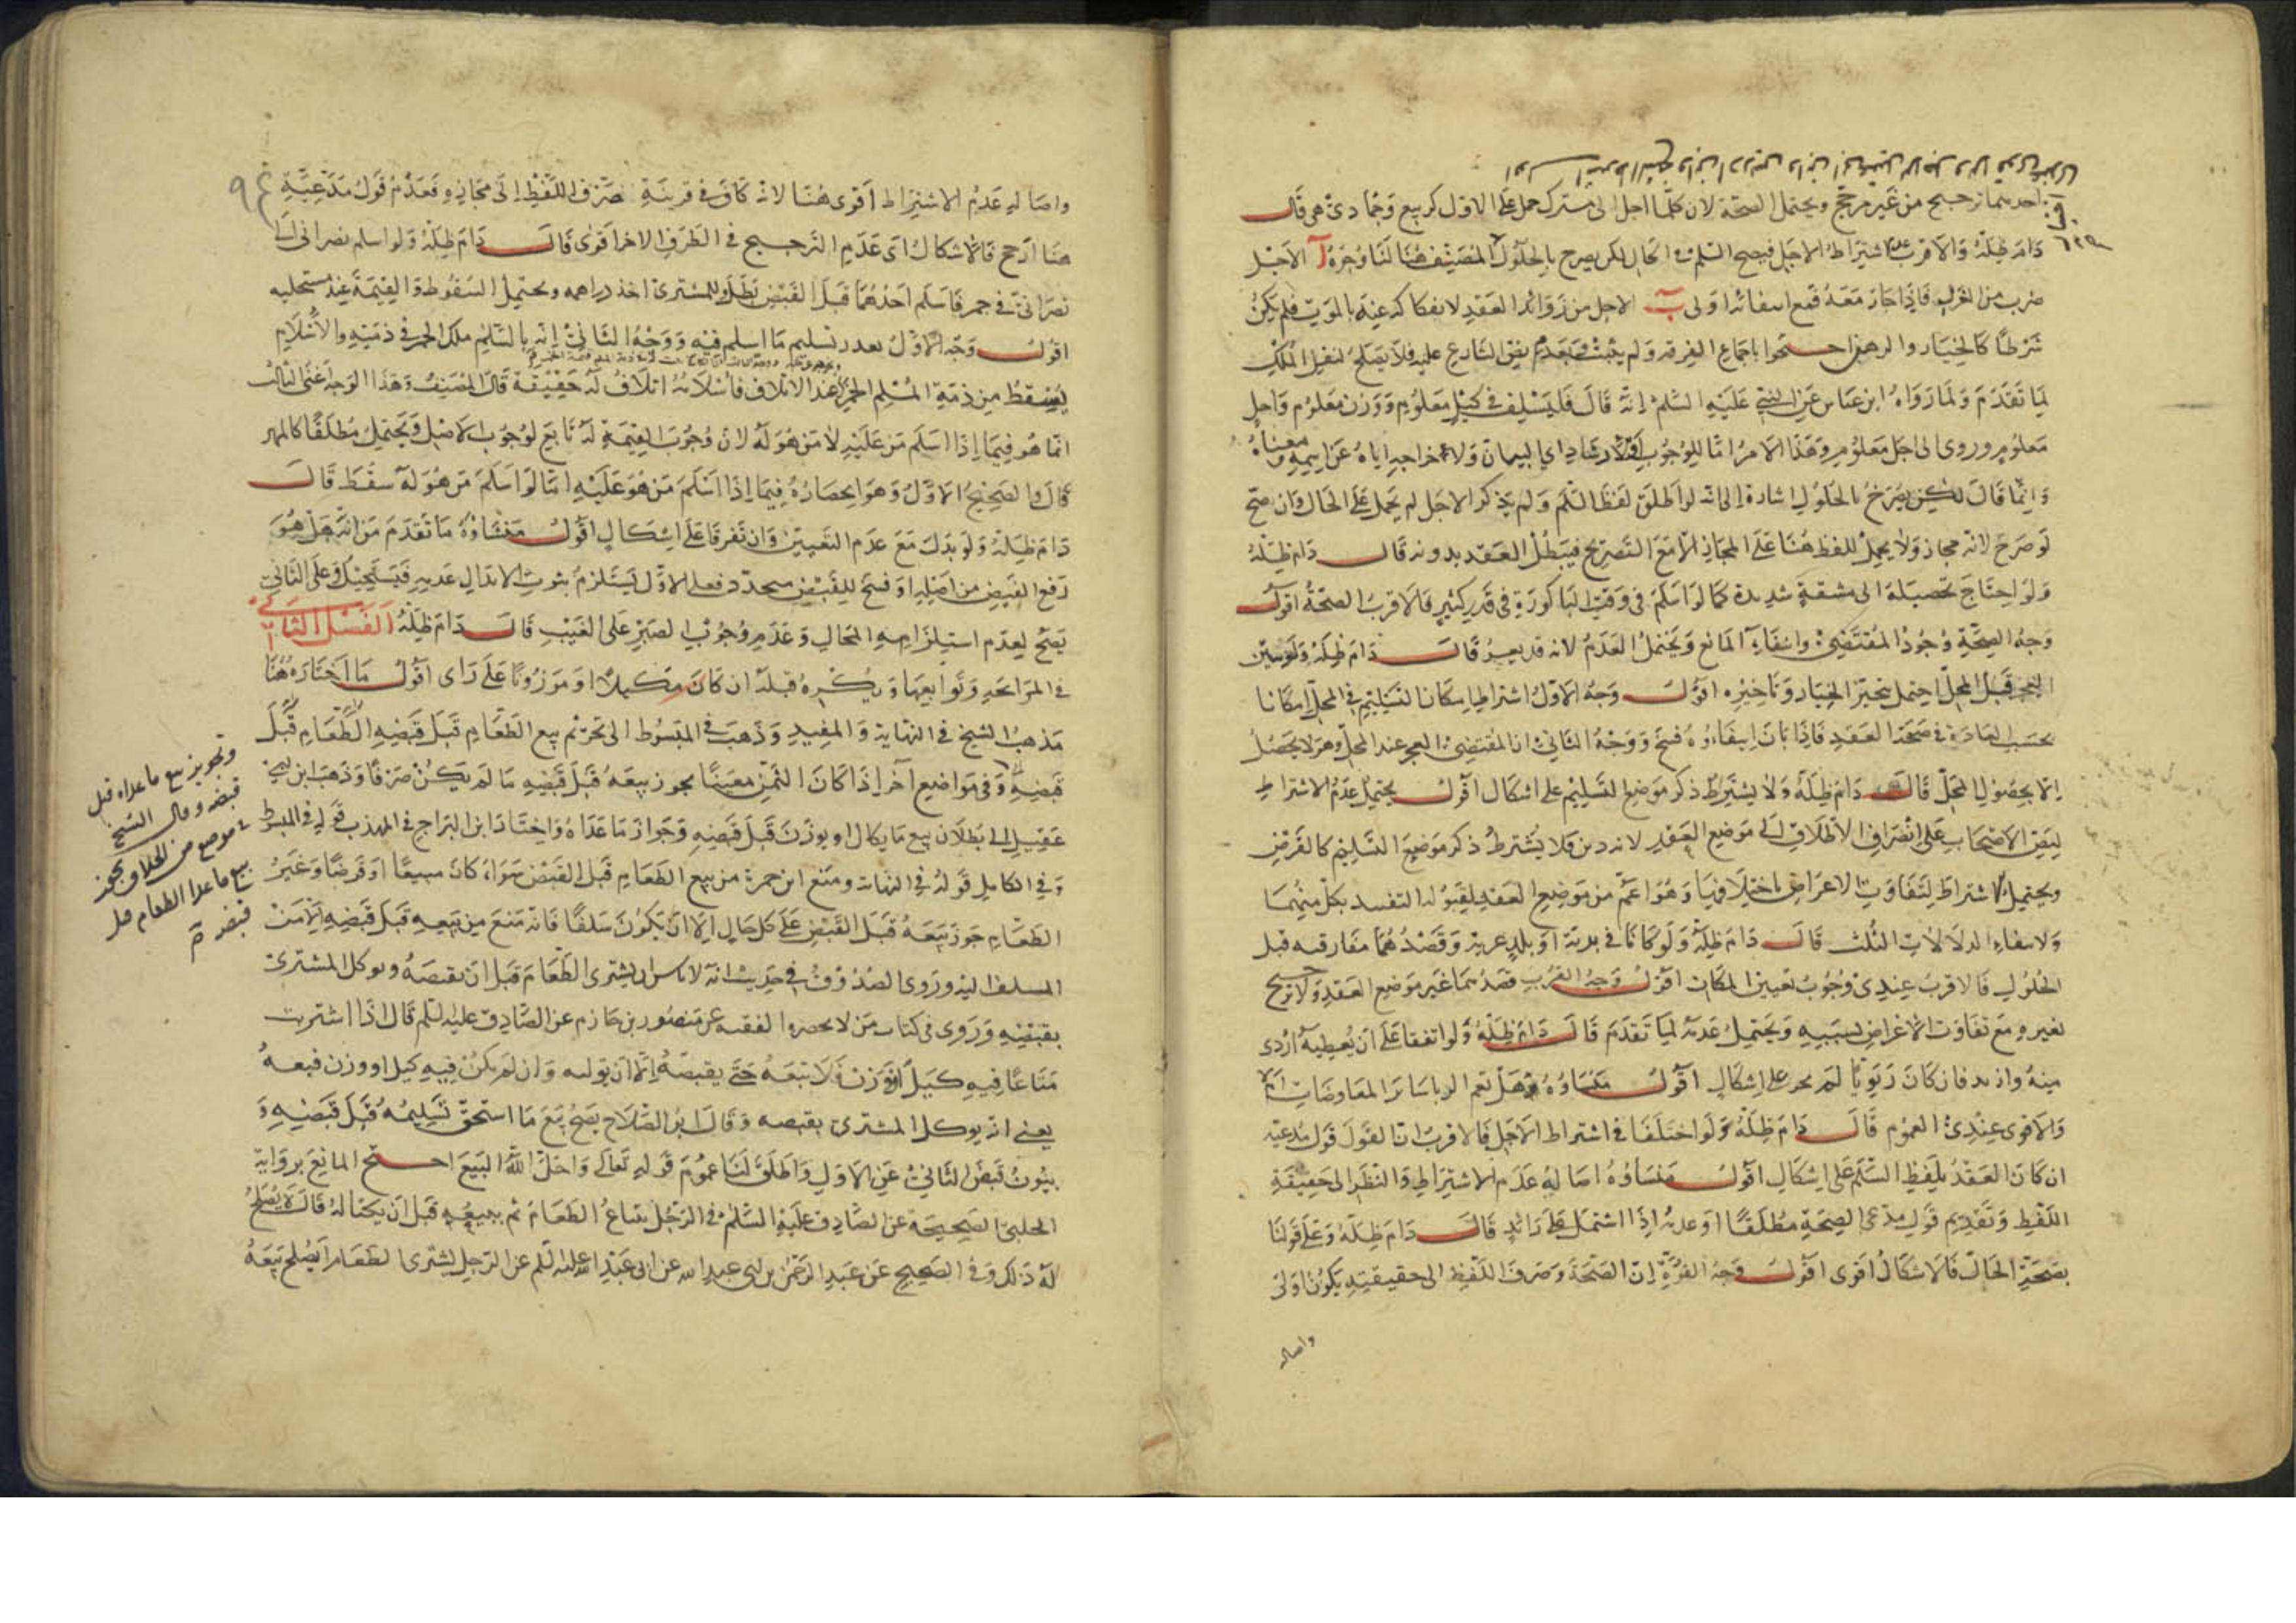 احدهما ترجيح من غير مرجح ويحتمل الصحة لان كلما اجل الى مشترك حمل على الاول كربيع وجمادى هي قال
دام ظله والاقرب عدم اشتراط الاجل فيصح السلم في الحال لكن يصرح بالحلول المصنف هنا لنا وجوه آ الاجل
ضرب من الغرر فاذا جاز معه فمع انتفائه اولى ب الاجل من زوائد العقد لانفكاكه عنه بالموت فلم يكن
شرطا كالخيار والرهن احتجوا باجماع الفرقة ولم يثبت وبعدم نص الشارع عليه فلا يصلح لنقل الملك
لما تقدم ولما رواه ابن عباس عن النبي عليه السلم انه قال فليسلف في كيل معلوم ووزن معلوم واجل
معلوم وروى الى اجل معلوم وهذا الامر اما للوجوب او للارشاد اي لبيان ولا اخراجه اياه عن اسمه ومعناه
وانما قال لكن يصرح بالحلول اشارة الى انه لو اطلق لفظ السلم ولم يذكر الاجل لم يحمل على الحال وان صح
لو صرح لانه مجاز ولا يحمل اللفظ هنا على المجاز الا مع التصريح فيبطل العقد بدونه قال دام ظله
ولو احتاج تحصيله الى مشقة شديدة كما لو اسلم في وقت الباكورة في قدر كثير فالاقرب الصحة اقول
وجه الصحة وجود المقتضي وانتفاء المانع ويحتمل العدم لانه قد يعسر قال دام ظله ولو تبين
العجز قبل المحل احتمل تنجيز الخيار وتاخيره اقول وجه الاول اشتراط امكان التسليم في المحل امكانا
بحسب العادة في صحة العقد فاذا بان انتفاؤه فسخ ووجه الثاني ان المقتضي العجز عند المحل وهو لا يحصل
الا بحصول المحل قال دام ظله ولا يشترط ذكر موضع التسليم على اشكال اقول يحتمل عدم الاشتراط
لنص الاصحاب على انصراف الاطلاق الى موضع العقد لانه دين فلا يشترط ذكر موضع التسليم كالقرض
ويحتمل الاشتراط لتفاوت الاغراض باختلافها وهو اعم من موضع العقد لقبوله التقييد بكل منهما
ولانتفاء الدلالات الثلث قال دام ظله ولو كانا في برية او بلد غربة وقصدهما مفارقته قبل
الحلول فالاقرب عندي وجوب تعيين المكان اقول وجه القرب قصدهما غير موضع العقد ولا ترجيح
لغيره مع تفاوت الاغراض بسببه ويحتمل عدمه لما تقدم قال دام ظله ولو اتفقا على ان يعطيه اردى
منه وازيد فان كان ربويا لم يجز على اشكال اقول منشاؤه هل تعم الربا سائر المعاوضات ام لا
والاقوى عندي العموم قال دام ظله ولو اختلفا في اشتراط الاجل فالاقرب ان القول قول مدعيه
ان كان العقد بلفظ السلم على اشكال اقول منشاؤه اصالة عدم الاشتراط والنظر الى حقيقة
اللفظ وتقديم قول مدعي الصحة مطلقا او عدمه اذا اشتمل على زائد قال دام ظله وعلى قولنا
بصحة الحال فالاشكال اقوى اقول وجه القوة ان الصحة وصرف اللفظ الى حقيقته يكون اولى
واصاله
واصالة عدم الاشتراط اقوى هنا لانه كاف في قرينة صرف اللفظ الى مجازه فعدم قول مدعيه
هنا ارجح فالاشكال اي عدم الترجيح في الطرف الاخر اقوى قال دام ظله ولو اسلم نصراني الى
نصراني في خمر فاسلم احدهما قبل القبض بطل وللمشتري اخذ دراهمه ويحتمل السقوط والقيمة عند مستحليه
اقول وجه الاول تعذر تسليم ما اسلم فيه ووجه الثاني انه بالسلم ملك الخمر في ذمته والاسلام
يسقط من ذمة المسلم الخمر عند الاتلاف فاسلامه اتلاف له حقيقة قال المصنف وهذا الوجه اعني الثالث
انما هو فيما اذا اسلم من عليه لا من هو له لان وجوب القيمة له تابع لوجوب الاصل ويحتمل مطلقا كالمهر
قال والصحيح الاول وهو انحصاره فيما اذا اسلم من هو عليه اما لو اسلم من هو له سقط قال
دام ظله ولو بدل مع عدم التعيين وان تفرقا على اشكال اقول منشاؤه ما تقدم من انه هل هو
رفع القبض من اصله او فسخ للقبض متجدد فعلى الاول يستلزم ثبوت الابدال عدمه فيستحيل وعلى الثاني
يصح لعدم استلزامه المحال وعدم وجوب الصبر على العيب قال دام ظله الفصل الثاني
في المرابحة وتوابعها ويكره قبله ان كان مكيلا او موزونا على راى اقول ما اختاره هنا
مذهب الشيخ في النهاية والمفيد وذهب في المبسوط الى تحريم بيع الطعام قبل قبضه الطعام قبل
قبضه وفي مواضع آخر اذا كان الثمن معينا يجوز بيعه قبل قبضه ما لم يكن صرفا وذهب ابن ابي
عقيل الى بطلان بيع ما يكال او يوزن قبل قبضه وجواز ما عداه واختار ابن البراج في المهذب قوله في المبسوط
وفي الكامل قوله في النهاية ومنع ابن حمزة من بيع الطعام قبل القبض سواء كان مبيعا او قرضا وغير
الطعام جوز بيعه قبل القبض على كل حال الا ان يكون سلفا فانه منع من بيعه قبل قبضه الا من
المسلف اليه وروى الصدوق في حديث انه لا باس ان يشتري الطعام قبل ان يقبضه ويوكل المشتري
بقبضه وروى في كتاب من لا يحضره الفقيه عن منصور بن حازم عن الصادق عليه السلم قال اذا اشتريت
متاعا فيه كيل او وزن فلا تبعه حتى يقبضه الا ان يوليه وان لم يكن فيه كيل او وزن فبعه
يعني انه يوكل المشتري بقبضه وقال ابو الصلاح يصح بيع ما استحق تسليمه قبل قبضه و
ينوب قبض الثاني عن الاول واطلق لنا عموم قوله تعالى واحل الله البيع احتج المانع برواية
الحلبي الصحيحة عن الصادق عليه السلم في الرجل يبتاع الطعام ثم يبيعه قبل ان يكتاله قال لا يصلح
له ذلك وفي الصحيح عن عبد الرحمن بن ابي عبد الله عن ابي عبد الله عليه السلم عن الرجل يشترى الطعام ايصلح بيعه
وتجويز بيع ما عداه قبل
قبضه وقال الشيخ
في موضع من الخلاف يجوز
بيع ما عدا الطعام قبل
قبضه